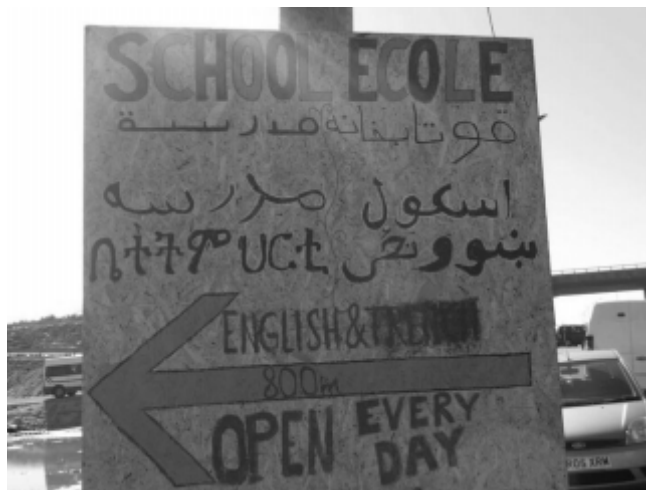 SCHOOL ECOLE
قوتابخانة مدرسة
اسکول مدرسه
ቤትትምህርቲ ښوونځی
ENGLISH & FRENCH
800m
OPEN EVERY DAY